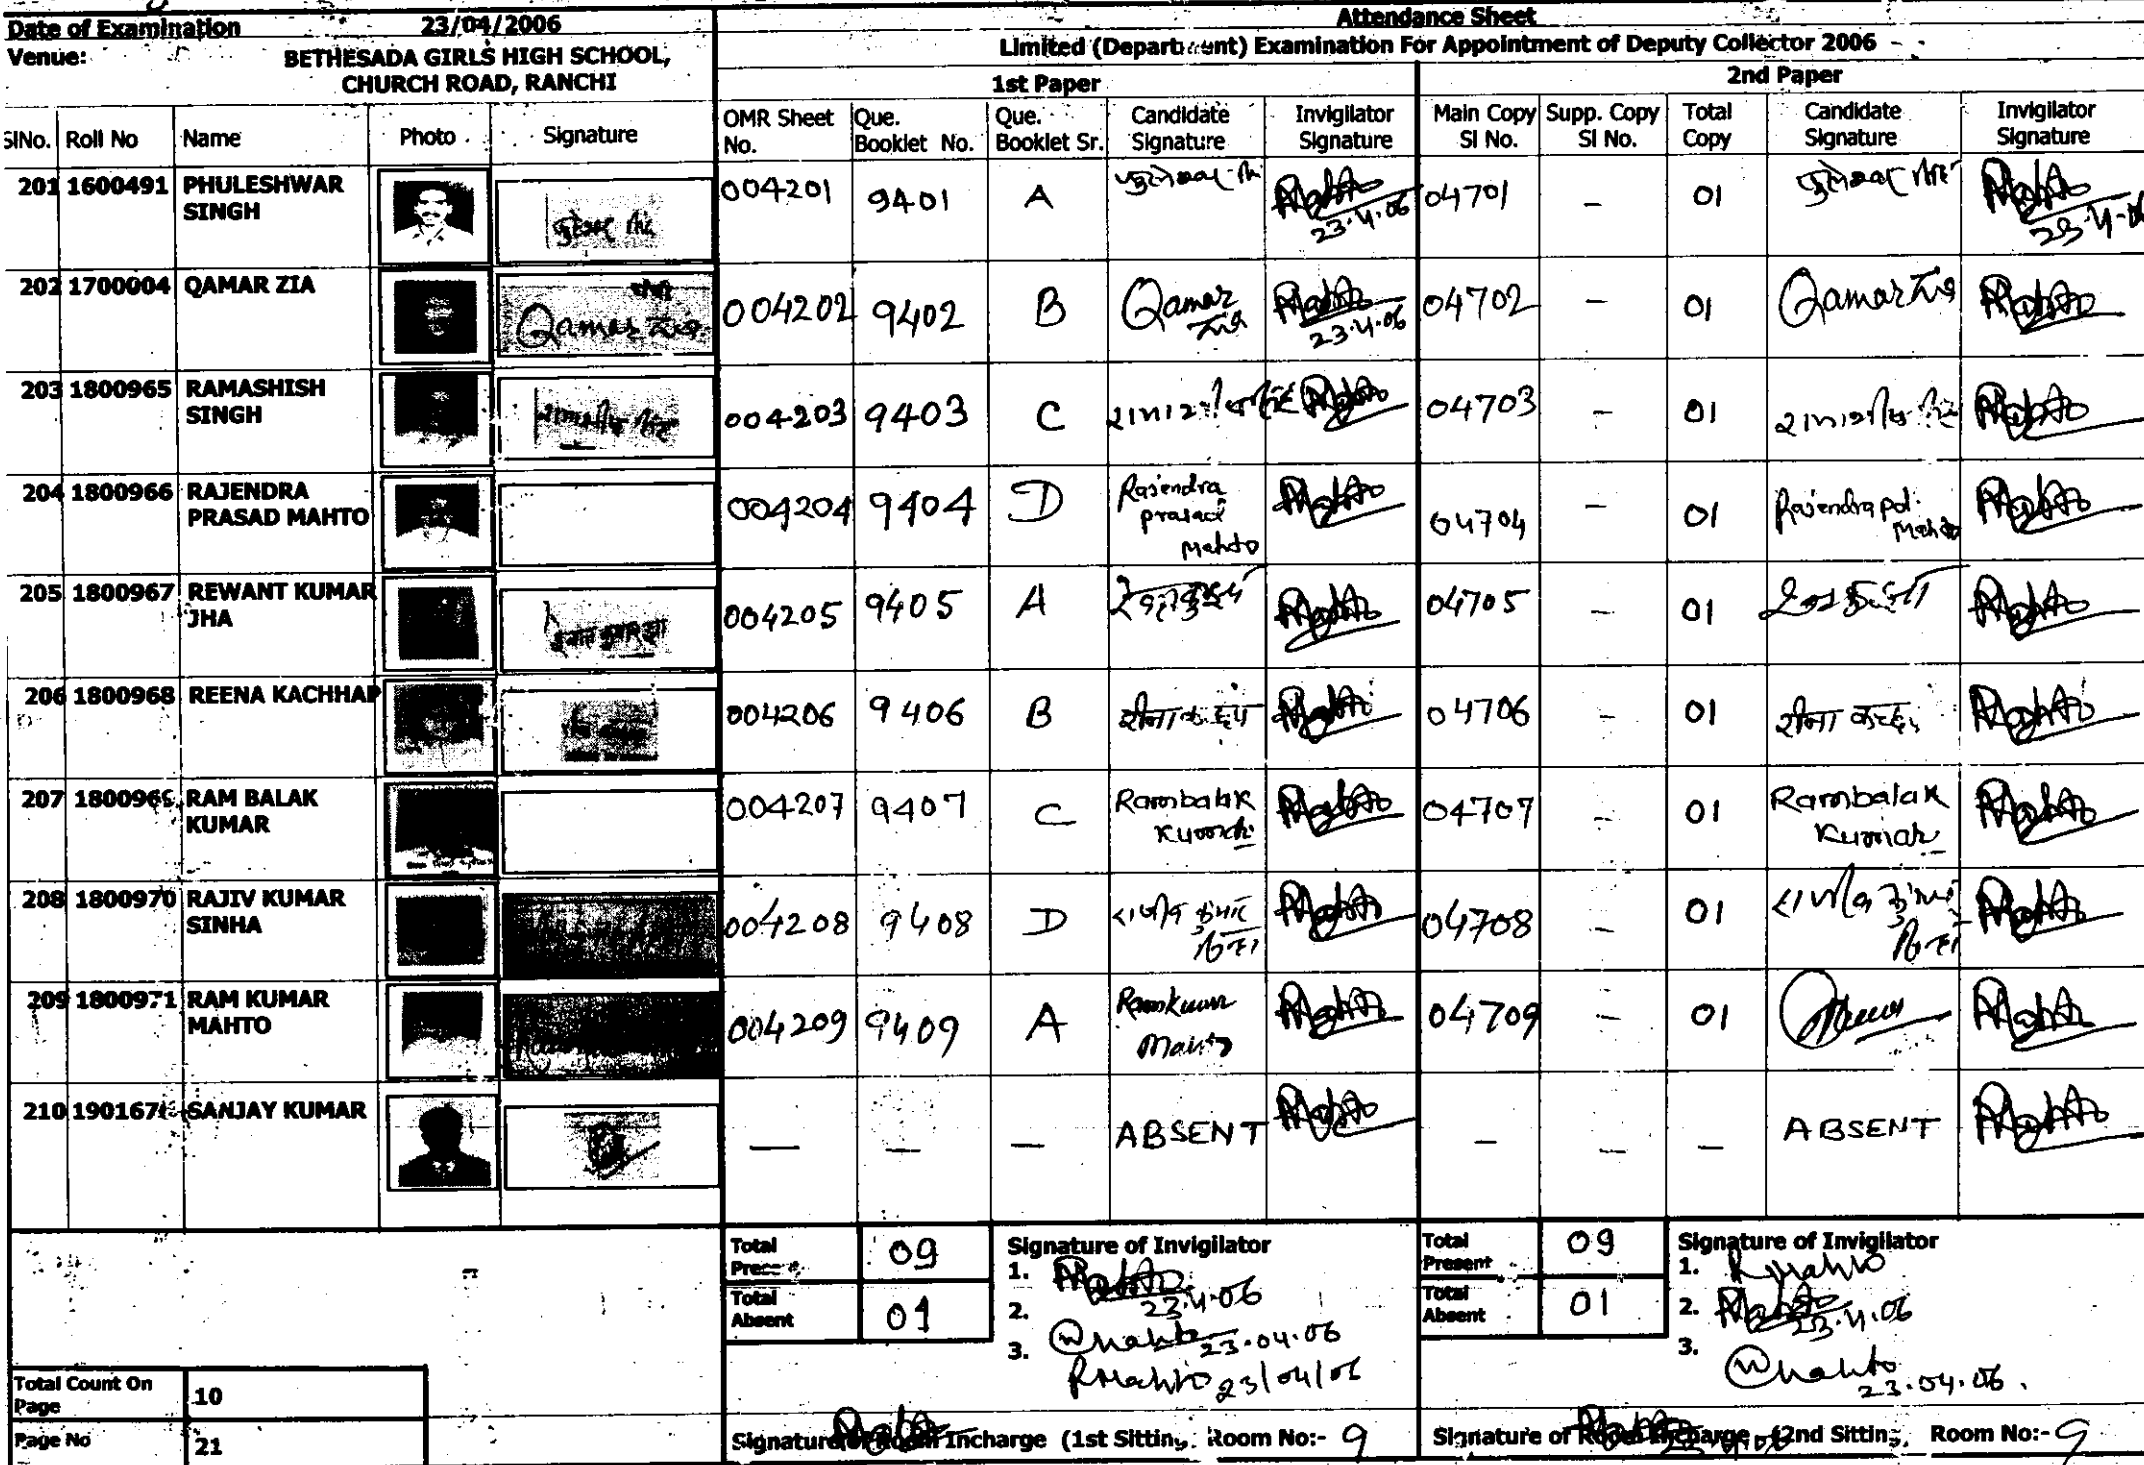 Date of Examination 23/04/2006
Venue: BETHESADA GIRLS HIGH SCHOOL,
CHURCH ROAD, RANCHI
Attendance Sheet
Limited (Department) Examination For Appointment of Deputy Collector 2006
1st Paper 2nd Paper
SlNo. Roll No Name Photo Signature OMR Sheet No. Que. Booklet No. Que. Booklet Sr. Candidate Signature Invigilator Signature Main Copy Sl No. Supp. Copy Sl No. Total Copy Candidate Signature Invigilator Signature
201 1600491 PHULESHWAR SINGH 004201 9401 A Mahto 23.4.06 04701 – 01 Mahto 23.4.06
202 1700004 QAMAR ZIA Qamar Zia 004202 9402 B Qamar Zia Mahto 23.4.06 04702 – 01 Qamar Zia Mahto
203 1800965 RAMASHISH SINGH 004203 9403 C Mahto 04703 – 01 Mahto
204 1800966 RAJENDRA PRASAD MAHTO 004204 9404 D Rajendra prasad Mahto Mahto 04704 – 01 Rajendra pd. Mahto Mahto
205 1800967 REWANT KUMAR JHA 004205 9405 A Mahto 04705 – 01 Mahto
206 1800968 REENA KACHHAP 004206 9406 B Mahto 04706 – 01 Mahto
207 180096 RAM BALAK KUMAR 004207 9407 C Rambalak Kumar Mahto 04707 – 01 Rambalak Kumar Mahto
208 1800970 RAJIV KUMAR SINHA 004208 9408 D राजीव कुमार सिन्हा Mahto 04708 – 01 राजीव कुमार सिन्हा Mahto
209 1800971 RAM KUMAR MAHTO 004209 9409 A Ramkumar Mahto Mahto 04709 – 01 Mahto
210 190167 SANJAY KUMAR — – — ABSENT Mahto – – – ABSENT Mahto
Total Present 09
Total Absent 01
Signature of Invigilator
1. Mahto 23.4.06
2.
3. Mahto 23.04.06
RMahto 23/04/06
Total Present 09
Total Absent 01
Signature of Invigilator
1. RMahto
2. Mahto 23.4.06
3. Mahto 23.04.06.
Total Count On Page 10
Page No 21
Signature of Room Incharge (1st Sitting) Room No:- 9
Signature of Room Incharge (2nd Sitting) Room No:- 9